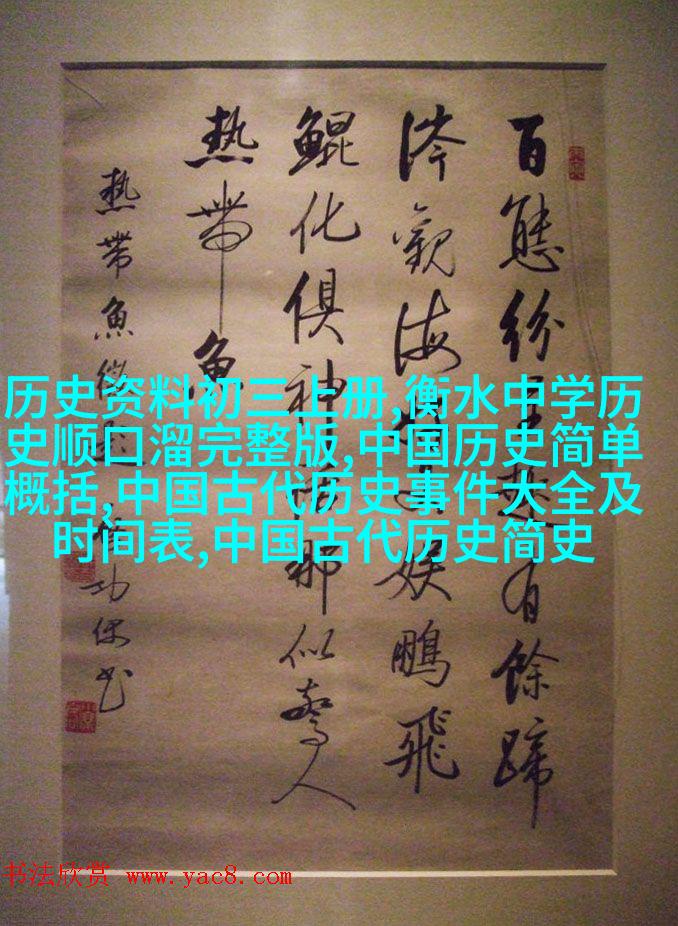 百態紛呈趣有餘蹄
涔觀海 娛鵬飛
鯤化俱神話那似驚人
熱帶魚
熱帶魚徵題 功
历史资料初三上册,衡水中学历
史顺口溜完整版,中国历史简单
概括,中国古代历史事件大全及
时间表,中国古代历史简史
书法欣赏 www.yac8.com